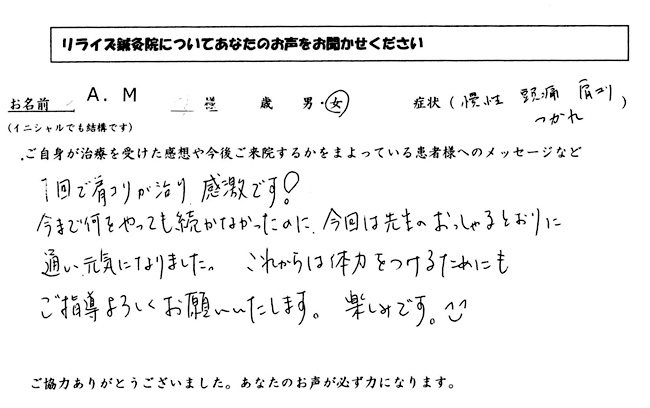 リライズ鍼灸院についてあなたのお声をお聞かせください
お名前 A. M 様 歳 男・女 症状 ( 慢性 頭痛 肩コリ
つかれ )
(イニシャルでも結構です)
ご自身が治療を受けた感想や今後ご来院するかをまよっている患者様へのメッセージなど
1回で肩コリが治り 感激です!
今まで何をやっても続かなかったのに、今回は先生のおっしゃるとおりに
通い、元気になりました。 これからは体力をつけるためにも
ご指導よろしくお願いいたします。 楽しみです。
ご協力ありがとうございました。あなたのお声が必ず力になります。